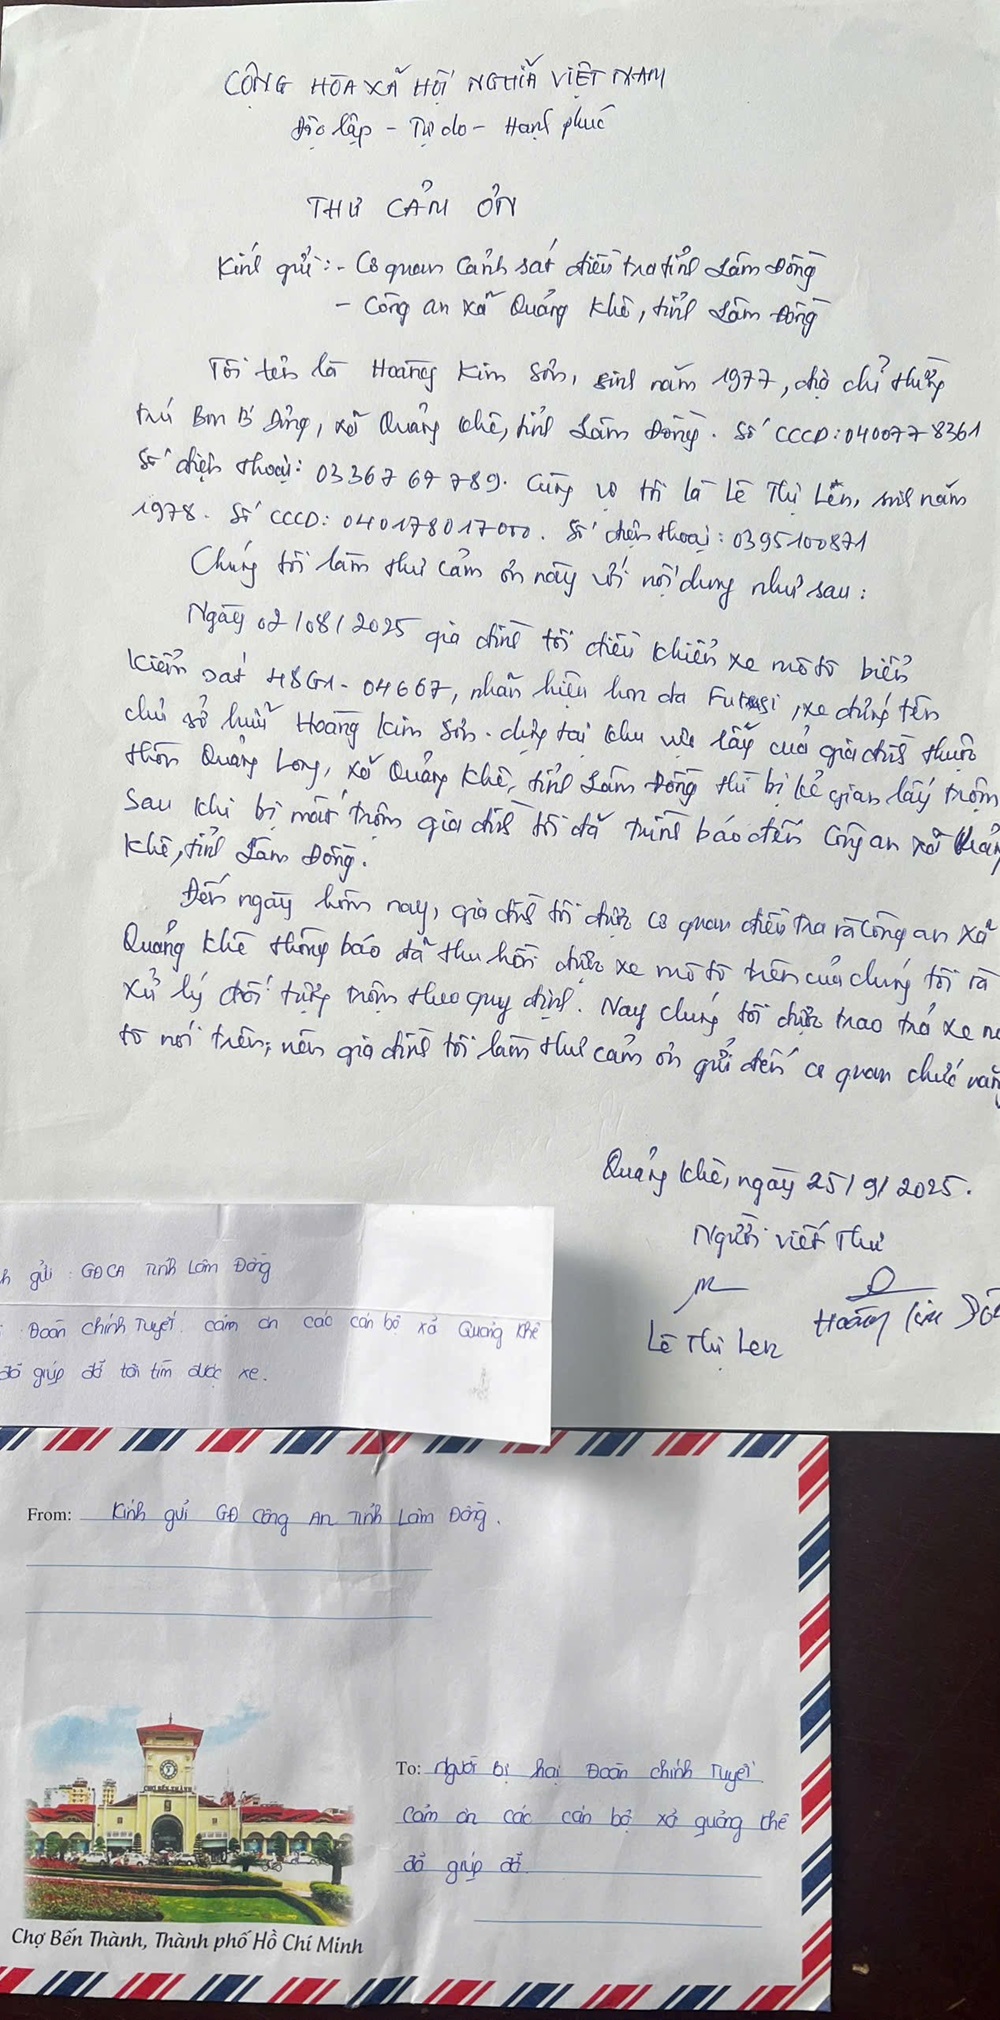 CỘNG HÒA XÃ HỘI NGHĨA VIỆT NAM
Độc lập - Tự do - Hạnh phúc
THƯ CẢM ƠN
Kính gửi: - Cơ quan Cảnh sát điều tra tỉnh Lâm Đồng
- Công an xã Quảng Khê, tỉnh Lâm Đồng
Tôi tên là Hoàng Kim Sơn, sinh năm 1977, địa chỉ thường
trú Bon B' Dơng, xã Quảng Khê, tỉnh Lâm Đồng. Số CCCD: 0400778361
Số điện thoại: 0336767789. Cùng vợ tôi là Lê Thị Lên, sinh năm
1978. Số CCCD: 040178017000. Số điện thoại: 0395100871
Chúng tôi làm thư cảm ơn này với nội dung như sau:
Ngày 02/08/2025 gia đình tôi điều khiển xe mô tô biển
kiểm sát 48G1-04667, nhãn hiệu hon da, xe đứng tên
chủ sở hữu Hoàng Kim Sơn. dựng tại khu vực rẫy của gia đình thuộc
thôn Quảng Long, xã Quảng Khê, tỉnh Lâm Đồng thì bị kẻ gian lấy trộm
Sau khi bị mất trộm gia đình tôi đã trình báo đến Công an xã Quảng
Khê, tỉnh Lâm Đồng.
Đến ngày hôm nay, gia đình tôi được cơ quan điều tra và Công an xã
Quảng Khê thông báo đã thu hồi được xe mô tô trên của chúng tôi và
xử lý đối tượng trộm theo quy định. Nay chúng tôi được trao trả xe mô
tô nói trên, nên gia đình tôi làm thư cảm ơn gửi đến cơ quan chức năng
Quảng Khê, ngày 25/9/2025.
Người viết Thư
Lê Thị Len
Hoàng Kim Sơn
h gửi: GĐCA Tỉnh Lâm Đồng
: Đoàn Chính Tuyết. cảm ơn các cán bộ xã Quảng Khê
đã giúp đỡ tôi tìm được xe.
From: Kính gửi GĐ Công An Tỉnh Lâm Đồng.
To: Người bị hại Đoàn chính Tuyết
Cảm ơn các cán bộ xã quảng khê
đã giúp đỡ
CHỢ BẾN THÀNH
Chợ Bến Thành, Thành phố Hồ Chí Minh